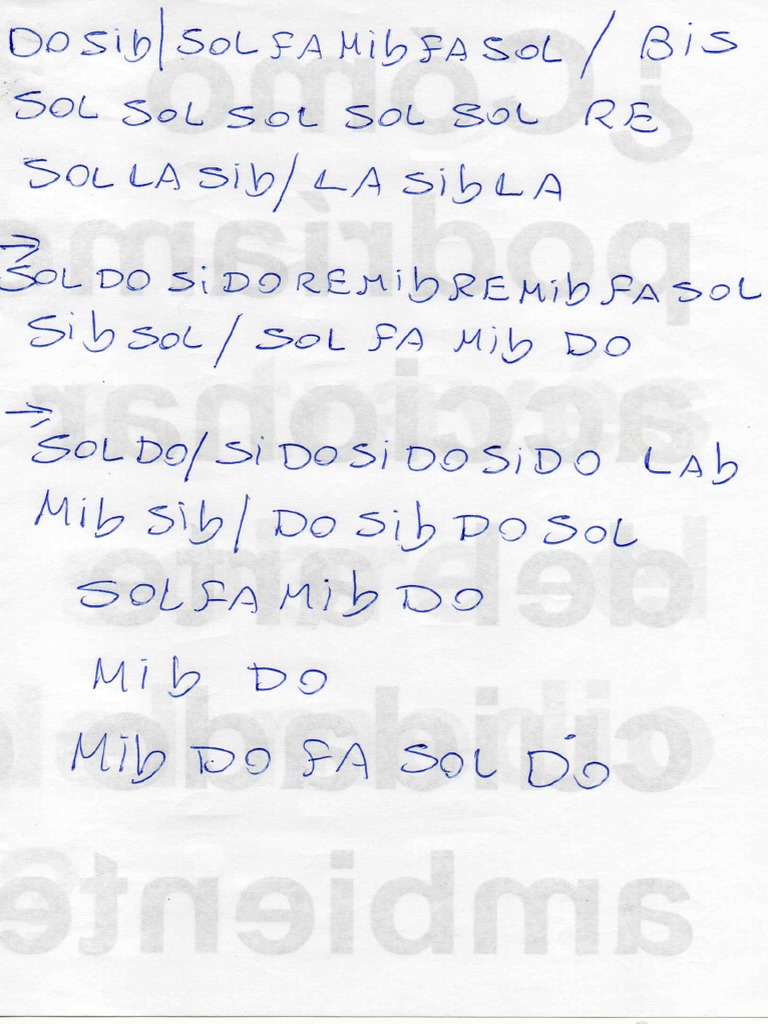 DO Sib/SOL FA Mib FA SOL / BIS
SOL SOL SOL SOL SOL RE
SOL LA Sib/ LA Sib LA
→
SOL DO Si DO RE Mib RE Mib FA SOL
Sib SOL / SOL FA Mib DO
→
SOL DO/ Si DO Si DO Si DO LAb
Mib Sib/ DO Sib DO SOL
SOL FA Mib DO
Mib DO
Mib DO FA SOL DȮ
¿Cómo
podríamo
accionar
del arte
ambiente